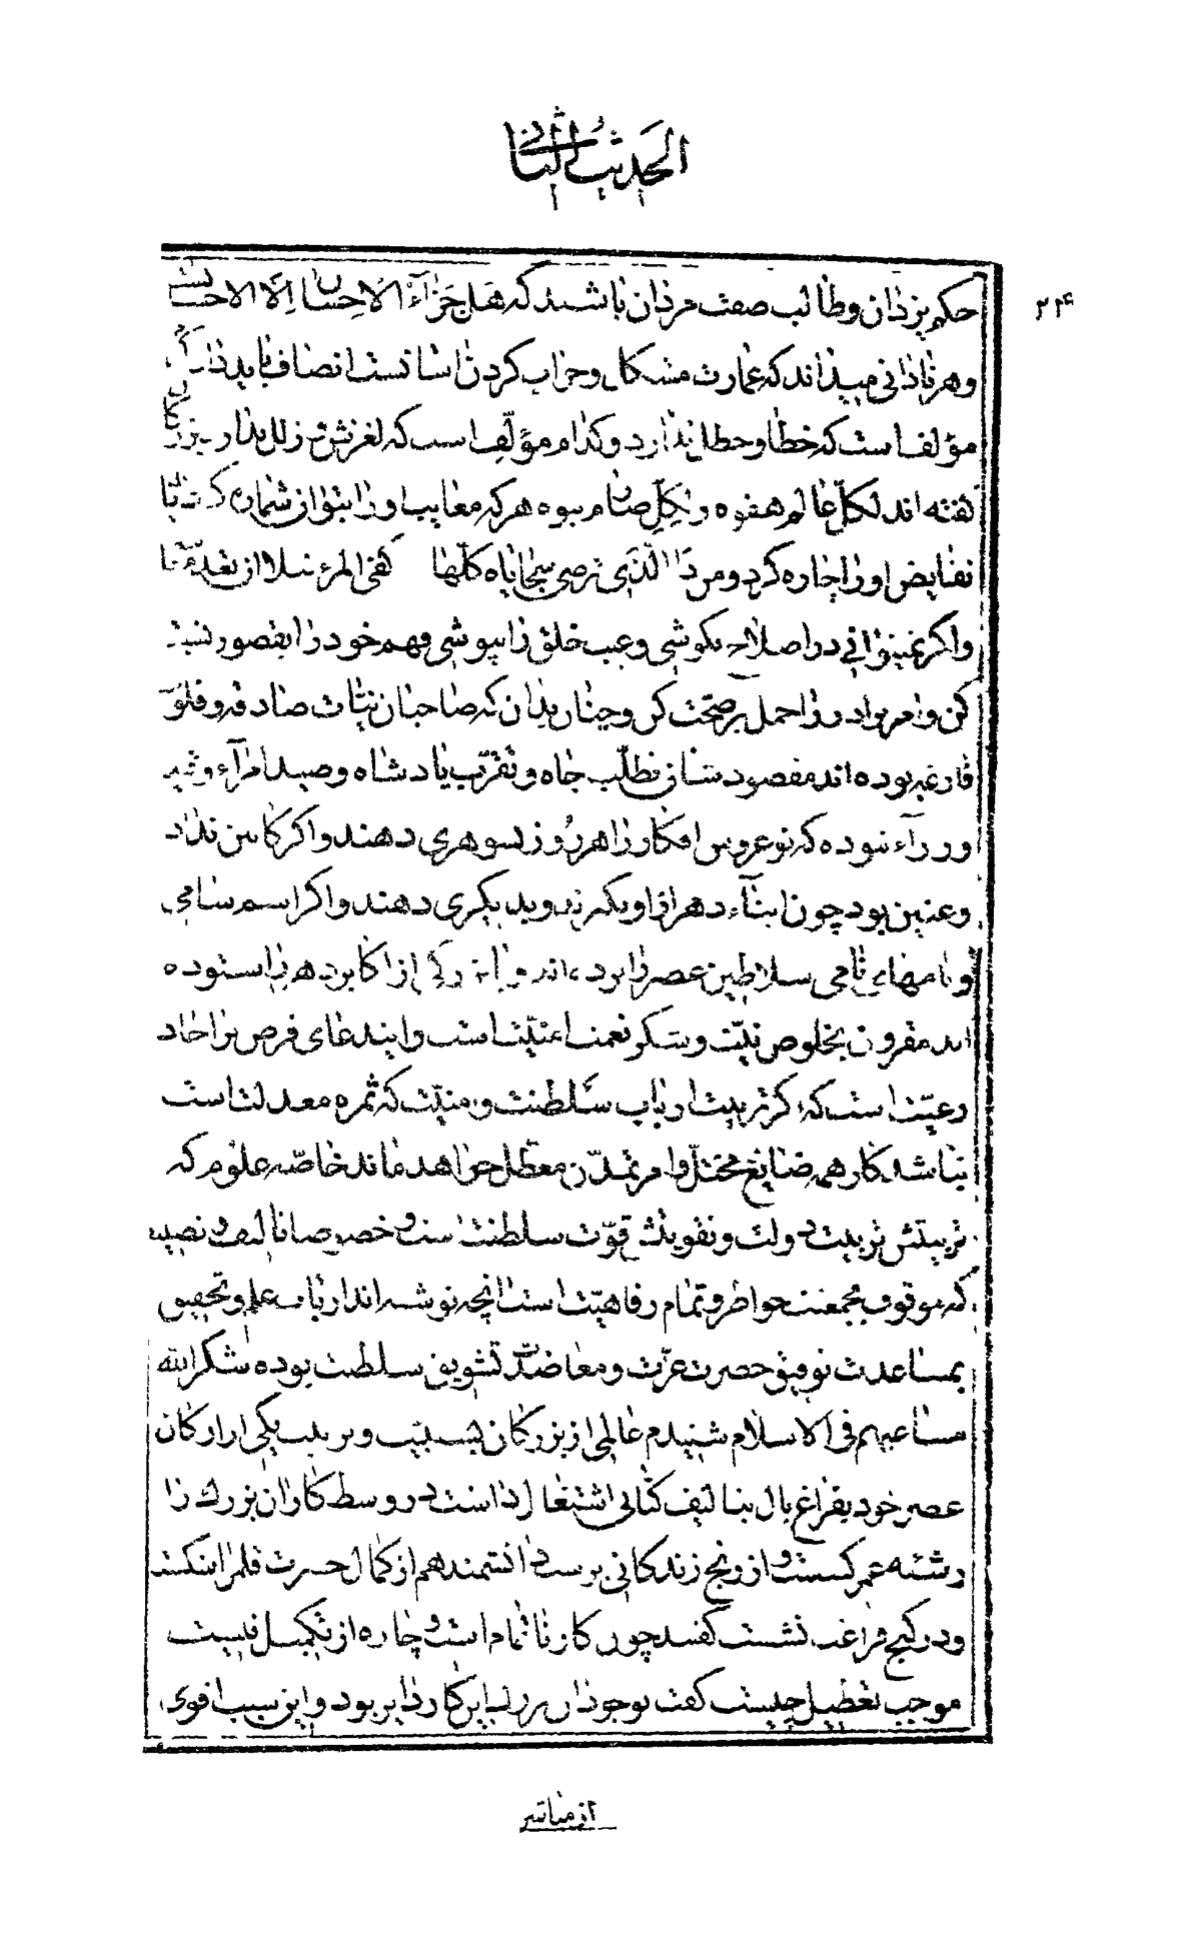 الحدیث الثانی
۲۴
حکم یزدان و طالب صفت مردان باشند که هَل جَزٰآءُ الاِحسان اِلّا الاحسان
و هر نادانی میداند که عمارت مشکل و خراب کردن اسانست انصاف باید داد کدام
مؤلف است که خطا و خطل ندارد و کدام مؤلّف است که لغزش و زلل ندارد بزرگان
گفته اند لکلّ عالم هفوه و لِکلِّ صارم نبوه هر که معایب او را بتوان شماره کرد
نقایص او را چاره کرد و من ذا الّذی ترضی سجایاه کلّها کفی المرء نبلا ان تعدّ
و اگر نمیتوانی در اصلاح بکوشی و عیب خلق را بپوشی فهم خود را بقصور نسبت
کن و امر برادر را حمل بر صحّت کن و چنان بدان که صاحبان نیّات صادقه و قلوب
فارغه بوده اند مقصودشان تطلّب جاه و تقرّب پادشاه و صید امرآء و
وزرآء نبوده که نوعروس افکار را هر روز بشوهری دهند و اگر کابین نداد
و عنین بود چون ابنآء دهر او را و یکه زند و بدیگری دهند و اگر اسم سامی
و نامهای نامی سلاطین عصر را برده اند و از اکابر دهر را ستوده
اند مقرون بخلوص نیّت و شکر نعمت امنیّت است و اینددعای فرض بر احاد
رعیّت است که اگر تربیت ارباب سلطنت و امنیّت که ثمره معدلت است
نباشد کار همه ضایع مختلّ و امر تمدّن معطّل خواهد ماند خاصّه علوم که
تربیتش تربیت دولت و تقویتش قوّت سلطنت است و خصوصا تالیف و تصنیف
که موقوف بجمعیت خواطر و تمام رفاهیّت است انچه نوشته اند ارباب علم و تحقیق
بمساعدت توفیق حضرت عزّت و معاضدت تشویق سلطنت بوده شکر الله
مساعیهم فی الاسلام شنیدم عالمی از بزرگان بسبب و تربیت یکی از ارکان
عصر خود بفراغ بال بتالیف کتابی اشتغال داشت در وسط کار ان بزرک را
رشته عمر کسست و از رنج زندکانی برست دانشمند هم از کمال حسرت قلم را شکست
و در کنج فراغت نشست گفتند چون کار ناتمام است و چاره از تکمیل نیست
موجب تعطیل چیست کفت بوجود ان بزرک این کار دایر بود و این سبب اقوی
از مباشر